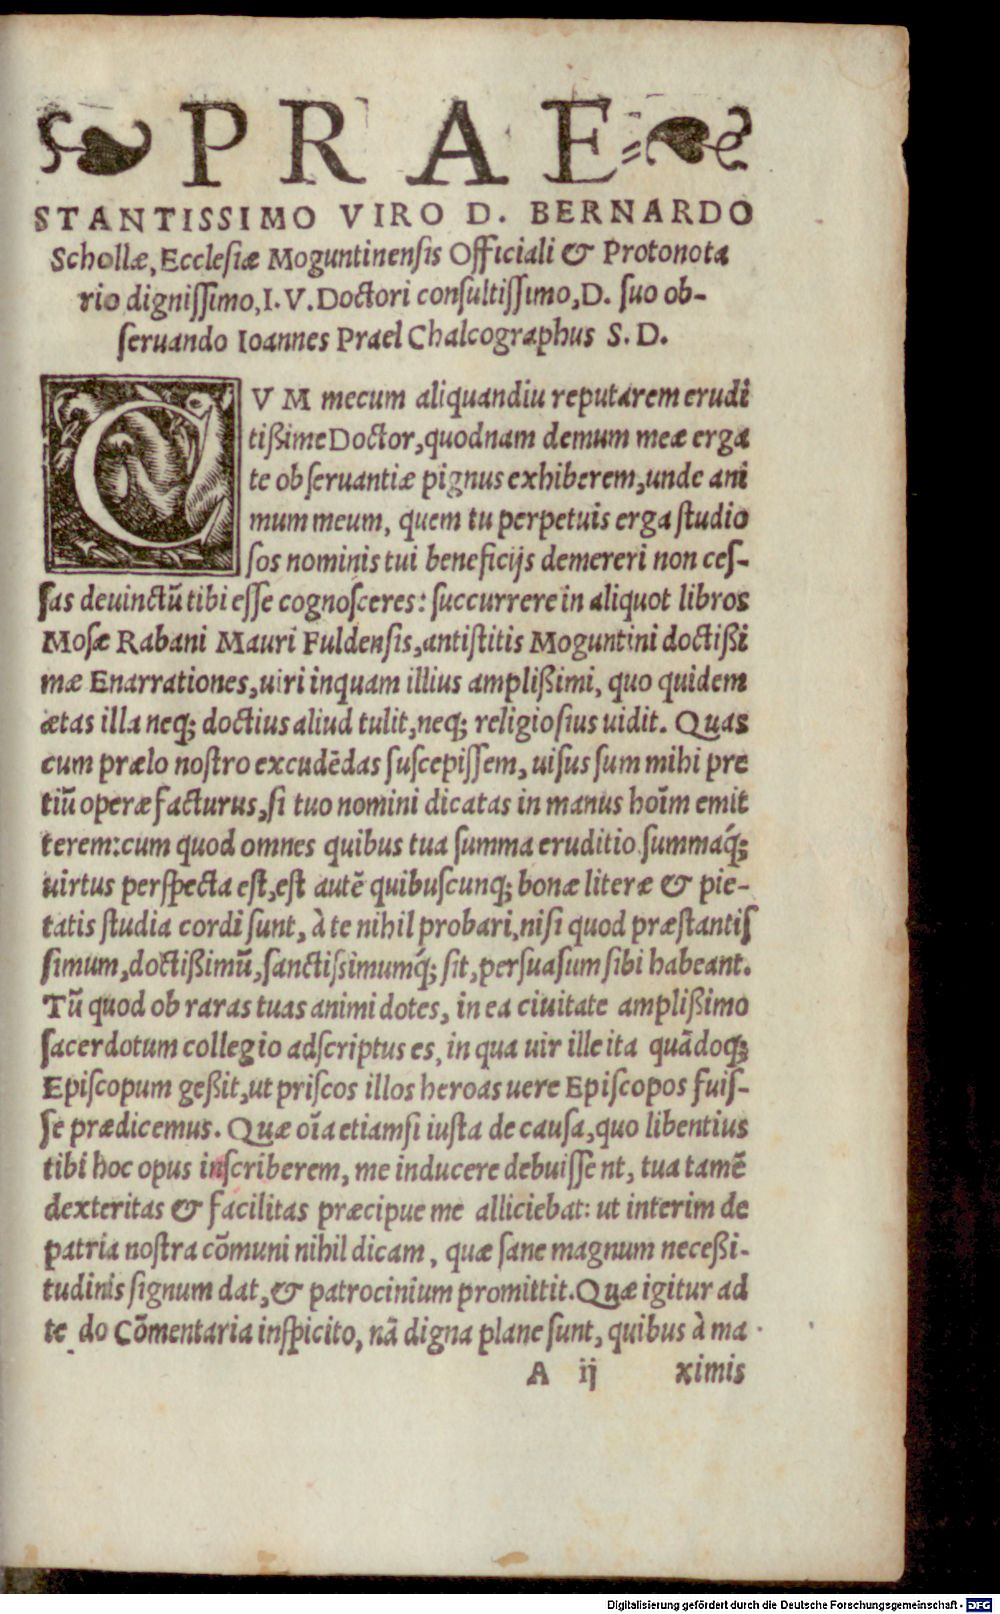 PRAE
STANTISSIMO VIRO D. BERNARDO
Schollæ, Ecclesiæ Moguntinensis Officiali & Protonota
rio dignissimo, I. V. Doctori consultissimo, D. suo ob-
seruando Ioannes Prael Chalcographus S. D.
CVM mecum aliquandiu reputarem erudi
tißime Doctor, quodnam demum meæ erga
te obseruantiæ pignus exhiberem, unde ani
mum meum, quem tu perpetuis erga studio
sos nominis tui beneficijs demereri non ces-
sas deuinctũ tibi esse cognosceres: succurrere in aliquot libros
Mosæ Rabani Mauri Fuldensis, antistitis Moguntini doctißi
mæ Enarrationes, uiri inquam illius amplißimi, quo quidem
ætas illa neq; doctius aliud tulit, neq; religiosius uidit. Quas
cum prælo nostro excudẽdas suscepissem, uisus sum mihi pre
tiũ operæ facturus, si tuo nomini dicatas in manus hoĩm emit
terem: cum quod omnes quibus tua summa eruditio summaq́;
uirtus perspecta est, est autẽ quibuscunq; bonæ literæ & pie-
tatis studia cordi sunt, à te nihil probari, nisi quod præstantis
simum, doctißimũ, sanctissimumq́; sit, persuasum sibi habeant.
Tũ quod ob raras tuas animi dotes, in ea ciuitate amplißimo
sacerdotum collegio adscriptus es, in qua uir ille ita quãdoq;
Episcopum geßit, ut priscos illos heroas uere Episcopos fuis-
se prædicemus. Quæ oĩa etiamsi iusta de causa, quo libentius
tibi hoc opus inscriberem, me inducere debuissent, tua tamẽ
dexteritas & facilitas præcipue me alliciebat: ut interim de
patria nostra cõmuni nihil dicam, quæ sane magnum neceßi-
tudinis signum dat, & patrocinium promittit. Quæ igitur ad
te do Cõmentaria inspicito, nã digna plane sunt, quibus à ma
A ij ximis
Digitalisierung gefördert durch die Deutsche Forschungsgemeinschaft - DFG